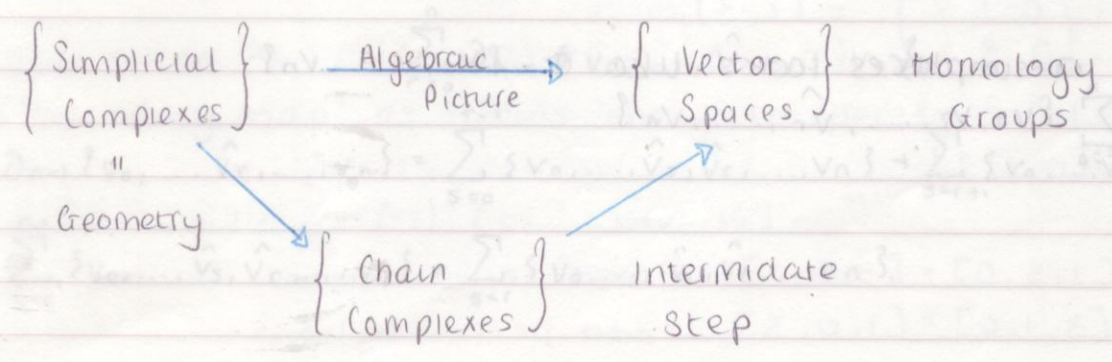 { Simplicial Complexes }
"
Geometry
Algebraic
Picture
{ Vector Spaces }
Homology
Groups
{ Chain Complexes }
Intermidate
Step